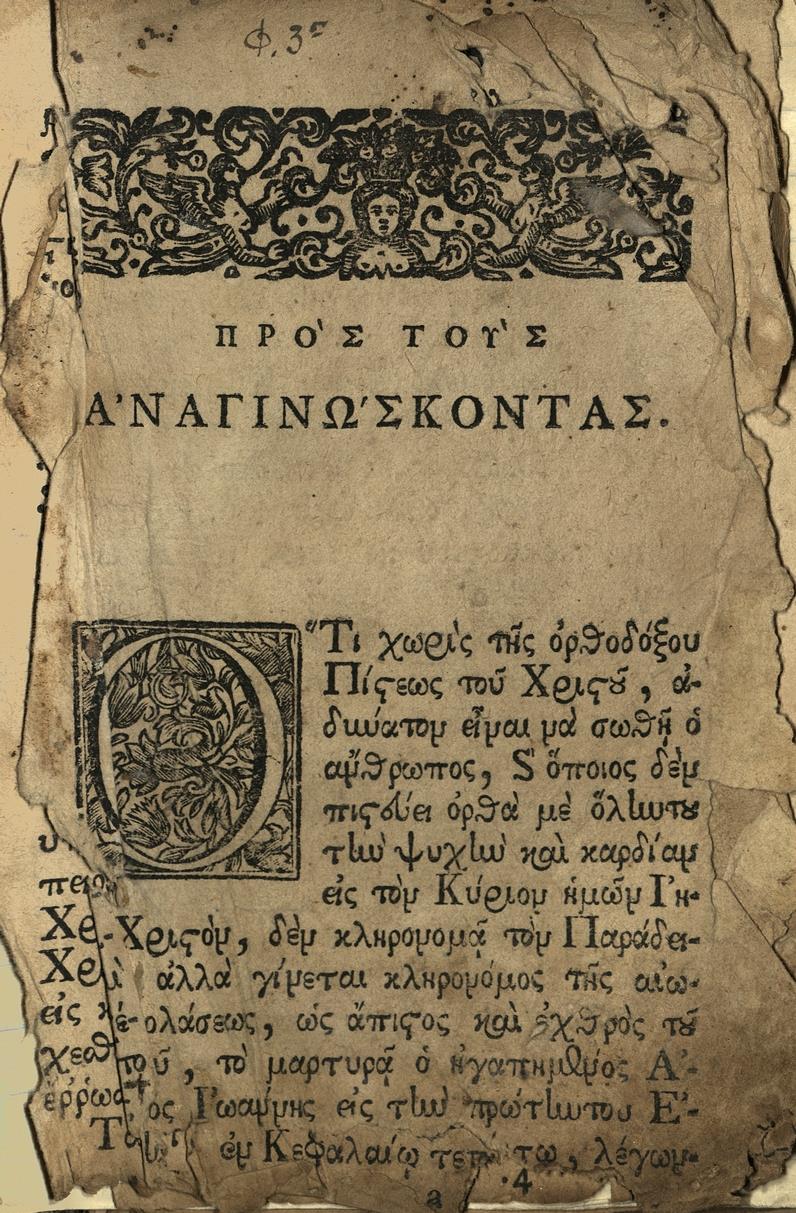 Φ. 3
ΠΡΟ`Σ ΤΟΥ`Σ
Α᾿ΝΑΓΙΝΩ΄ΣΚΟΝΤΑΣ.
Ὅτι χωρὶς τῆς ὀρθοδόξου
Πίςεως τοῦ Χριςȣ͂, ἀ-
δύνατον εἶναι νὰ σωθῇ ὁ
ἄνθρωπος, ὅποιος δὲν
πιςεύει ὀρθὰ μὲ ὅλην τȣ
τὴν ψυχὴν καὶ καρδίαν
εἰς τὸν Κύριον ἡμῶν Ἰη-
Χριςὸν, δὲν κληρονομᾷ τὸν Παράδει-
ἀλλὰ γίνεται κληρονόμος τῆς αἰω-
κολάσεως, ὡς ἄπιςος καὶ ἐχθρὸς τȣ͂
τοῦ, τὸ μαρτυρᾷ ὁ ἠγαπημένος Ἀ-
ος Ἰωάννης εἰς τὴν πρώτην του Ἐ-
ἐν Κεφαλαίῳ λέγων-
a 4